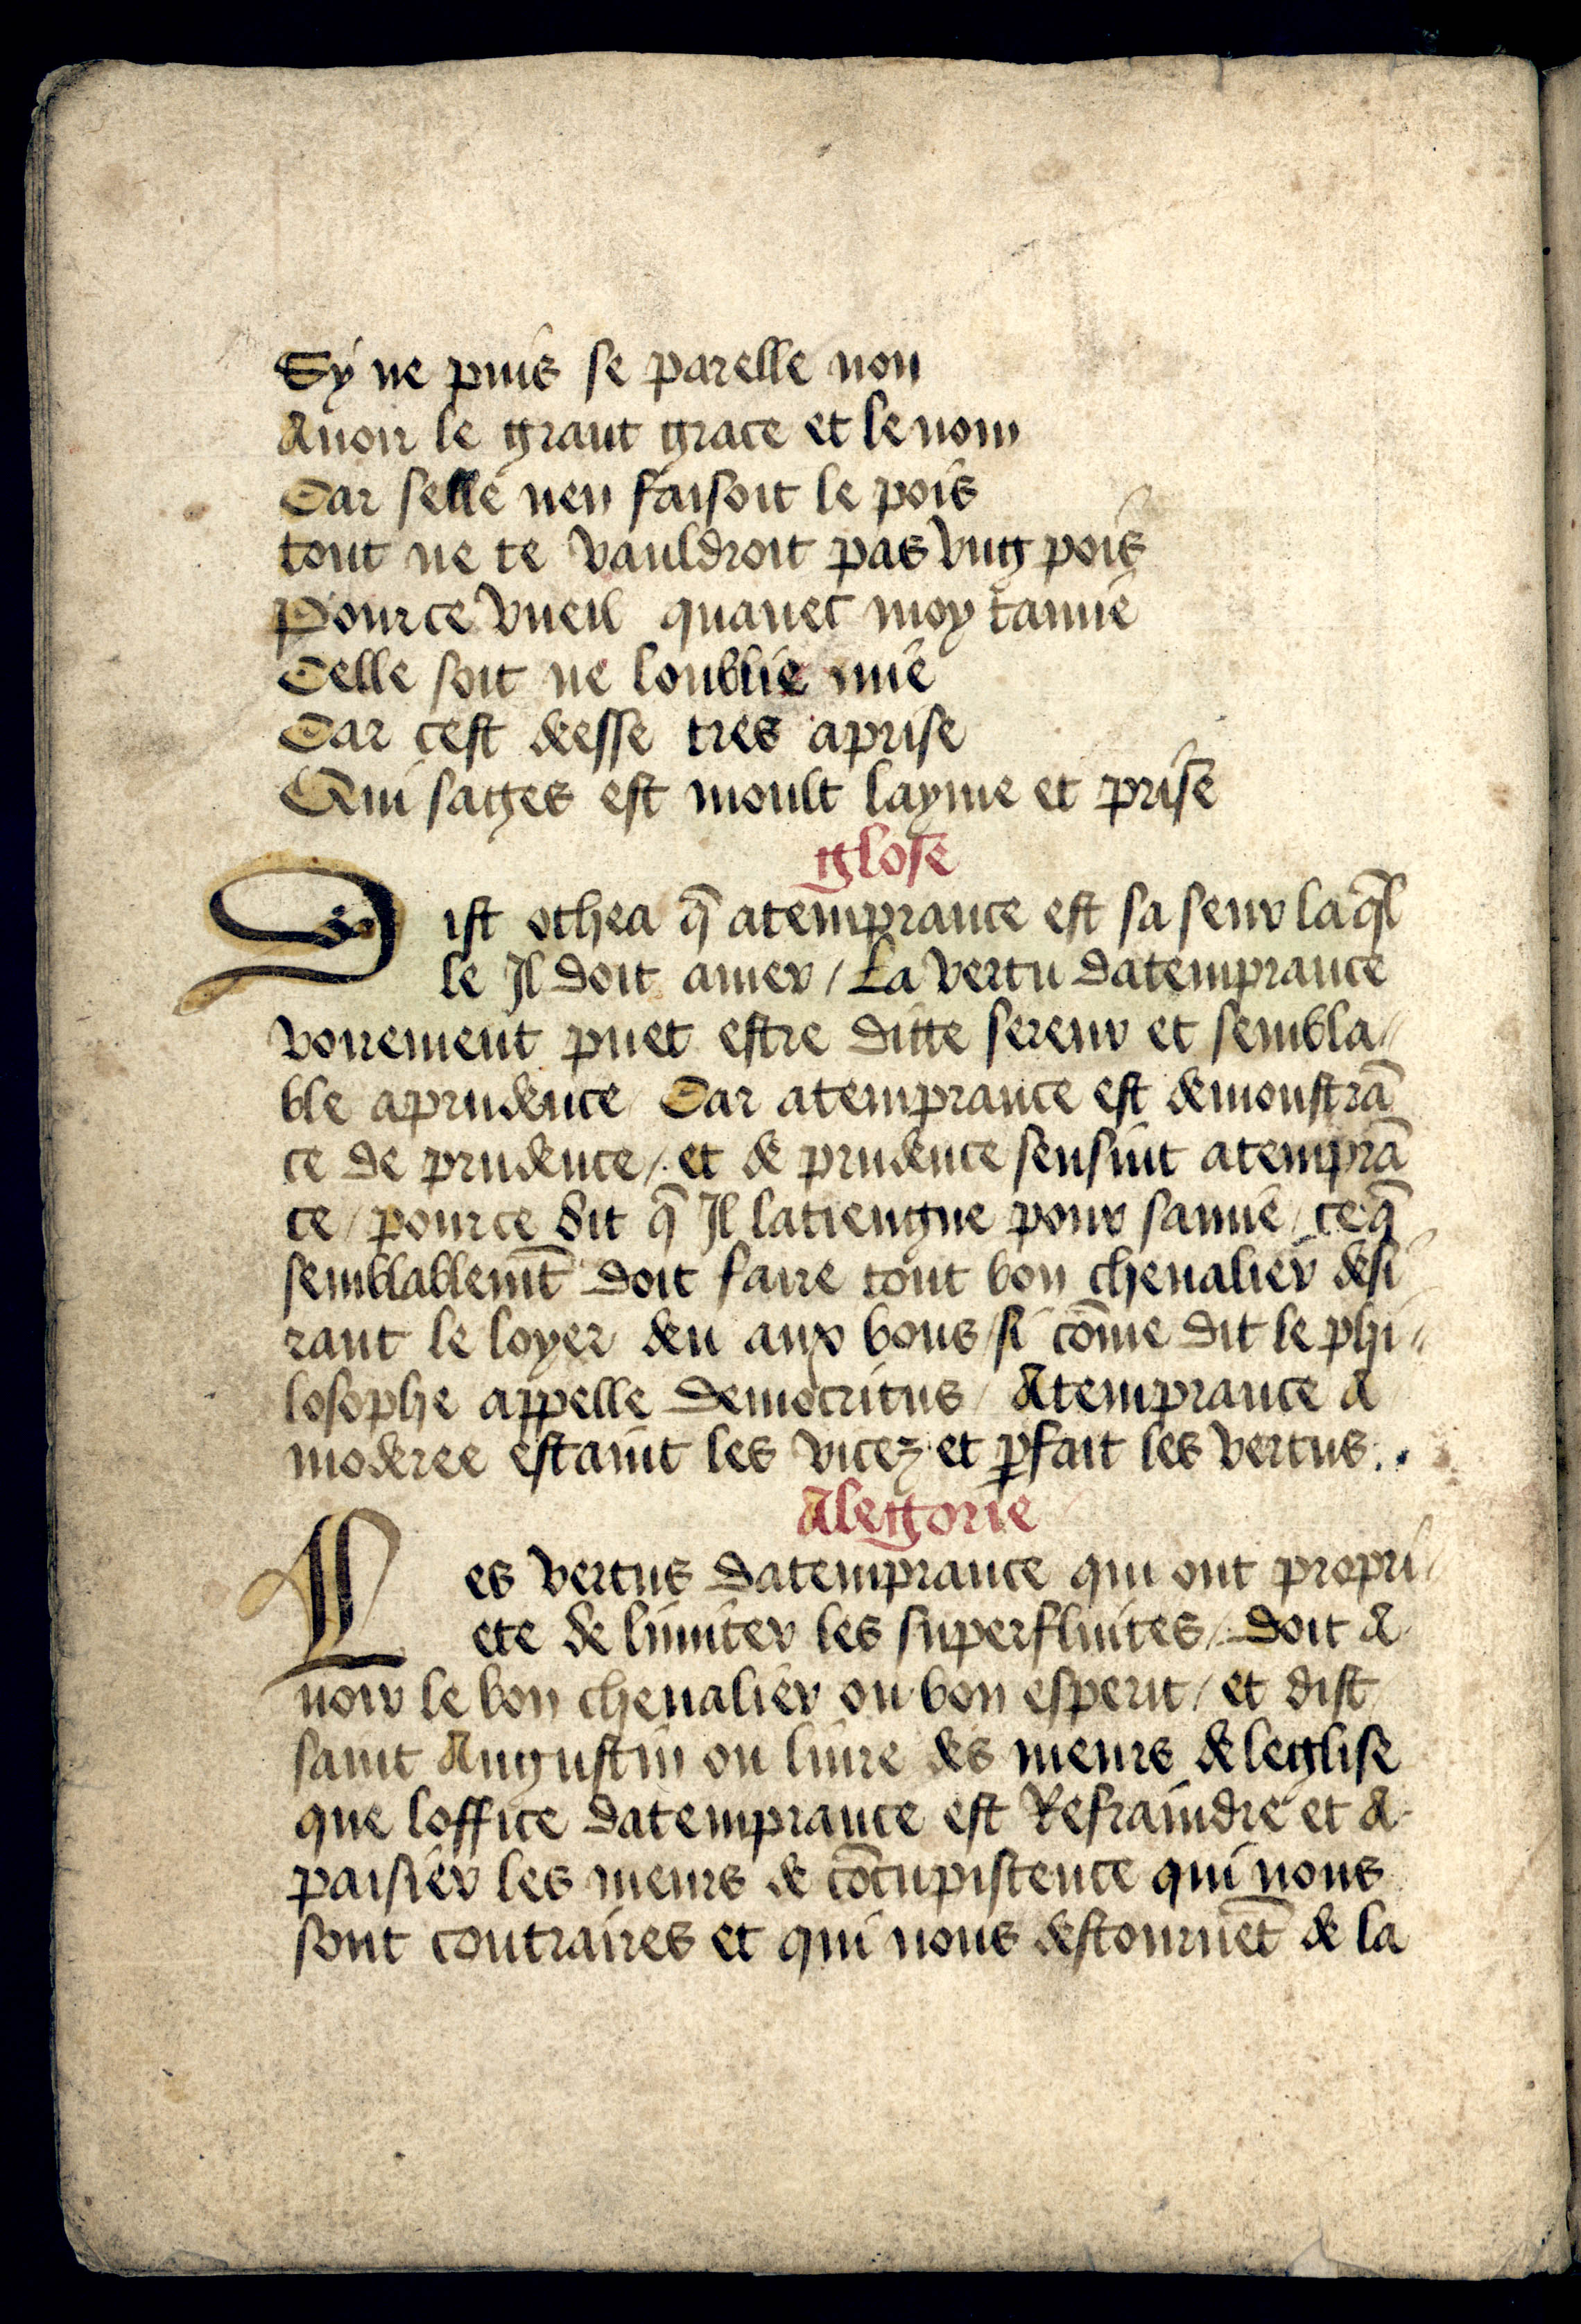 Sy ne puis se parelle non
Auoir le grant grace et le nom
Car selle nen faisoit le pois
tout ne te vauldroit pas vng pois
Pource vueil quauec moy tamie
Celle soit ne loublie mie
Car cest deesse tres aprise
Qui sages est moult layme et prise
glose
Dist othea q̄ atemprance est sa seur laq̄l
le Il doit amer / La vertu datemprance
voirement puet estre ditte sereur et sembla〃
ble aprudence / Car atemprance est demonstrā
ce de prudence / et de prudence sensuit atemprā
ce / pource dit q̄ Il latiengne pour samie / ce q̄
semblablemt̄ doit faire tout bon cheualier desi
rant le loyer deu aux bons / si cōme dit le phi〃
losophe appelle democritus / Atemprance A
moderee estaint les vicez et ꝑfait les vertus..
Alegorie
Les vertus datemprance qui ont propri〃
ete de limiter les superfluites / doit A
uoir le bon cheualier ou bon esperit / et dist
saint Augustin ou liure des meurs de leglise
que loffice datemprance est Refraindre et A
paisier les meurs de cōcupiscence qui nous
sont contraires et qui nous destournēt de la